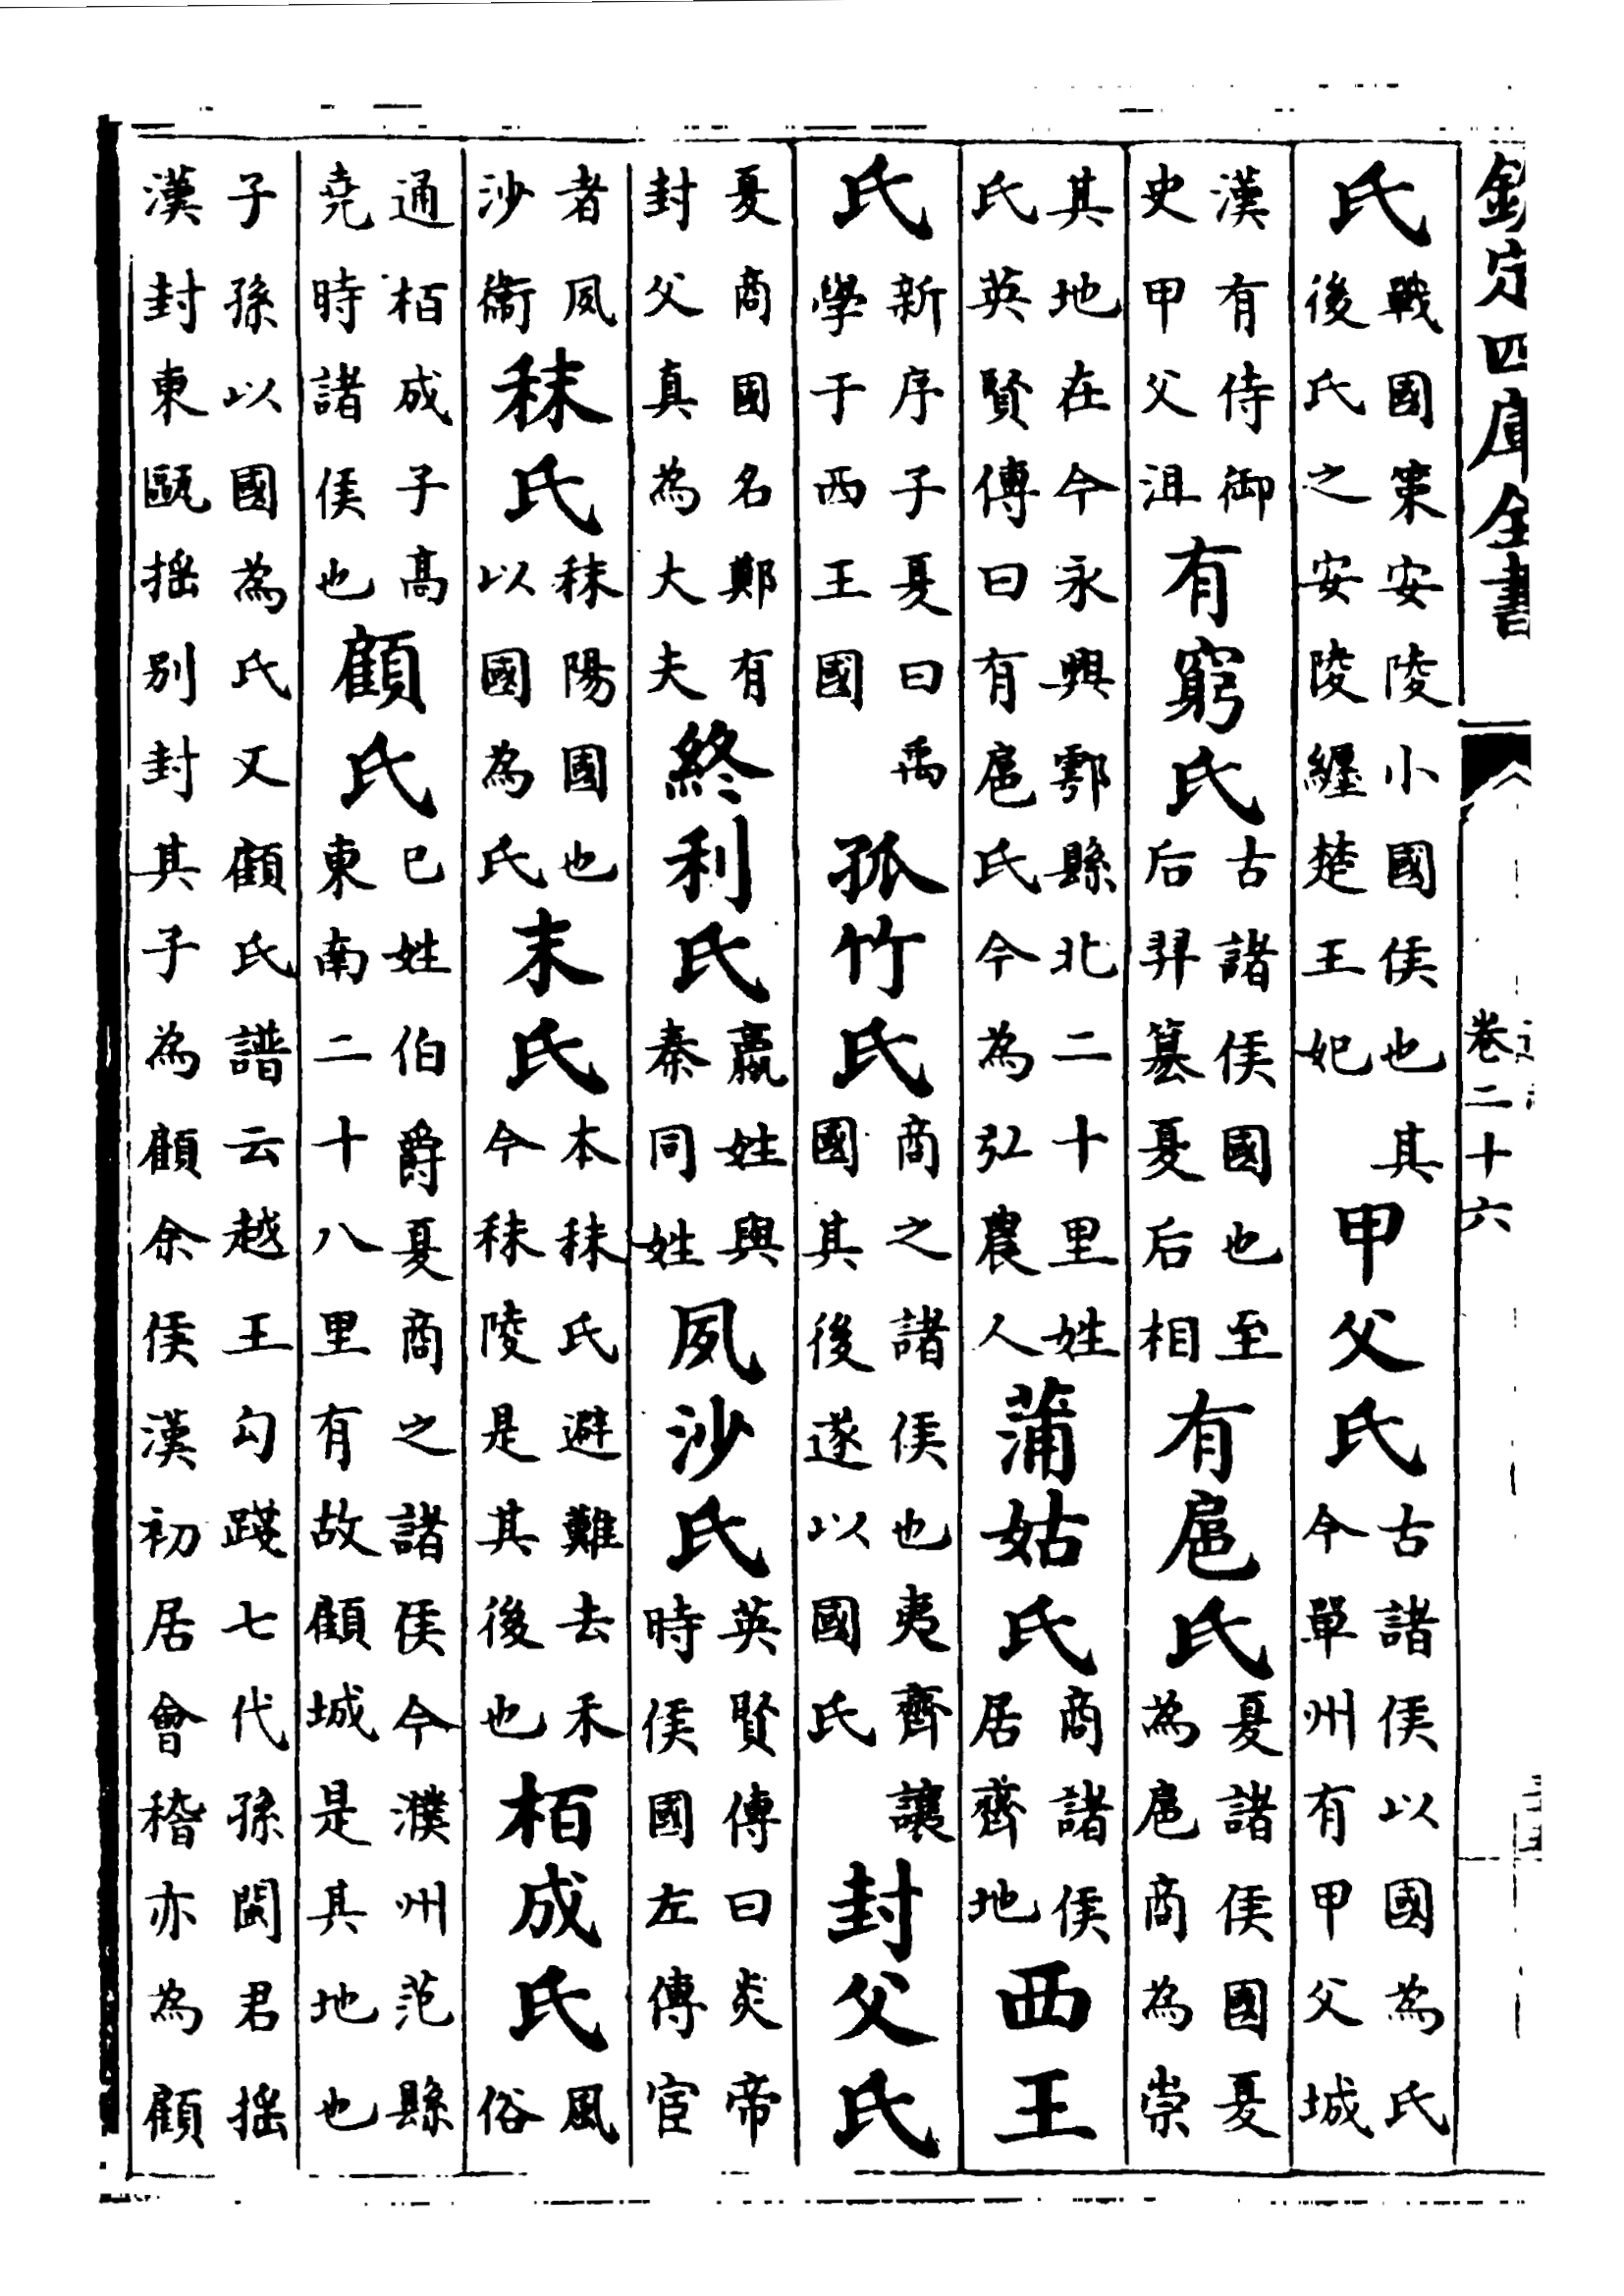 欽定四庫全書
卷二十六
氏
戰國策安陵小國侯也其
後氏之安陵纒楚王妃
甲父氏
古諸侯以國為氏
今單州有甲父城
漢有侍御
史甲父沮
有窮氏
古諸侯國也至
后羿簒夏后相
有扈氏
夏諸侯國夏
為扈商為崇
其地在今永興鄠縣北二十里姓
氏英賢傳曰有扈氏今為弘農人
蒲姑氏
商諸侯
居齊地
西王
氏
新序子夏曰禹
學于西王國
孤竹氏
商之諸侯也夷齊讓
國其後遂以國氏
封父氏
夏商國名鄭有
封父真為大夫
終利氏
嬴姓與
秦同姓
夙沙氏
英賢傳曰炎帝
時侯國左傳宦
者夙
沙衞
秣氏
秣陽國也
以國為氏
末氏
本秣氏避難去禾
今秣陵是其後也
栢成氏
風
俗
通栢成子高
堯時諸侯也
顧氏
己姓伯爵夏商之諸侯今濮州范縣
東南二十八里有故顧城是其地也
子孫以國為氏又顧氏譜云越王勾踐七代孫閩君揺
漢封東甌揺别封封其子為顧余侯漢初居會稽亦為顧